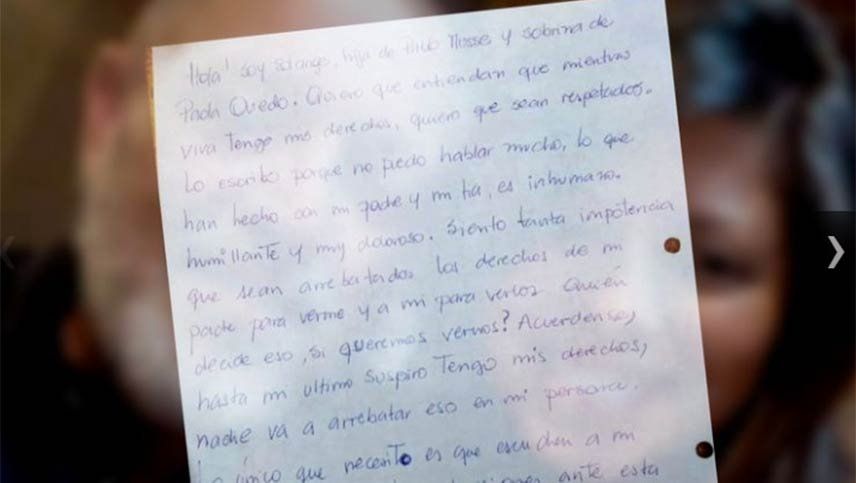 Hola! soy Solange, hija de Pablo Musse y sobrina de
Paola Oviedo. Quiero que entiendan que mientras
viva Tengo mis derechos, quiero que sean respetados.
Lo escribo porque no puedo hablar mucho, lo que
han hecho con mi padre y mi tia, es inhumano.
humillante y muy doloroso. Siento tanta impotencia
que sean arrebatados los derechos de mi
padre para verme y a mi para verlos Quién
decide eso, si queremos vernos? Acuerdense,
hasta mi ultimo suspiro Tengo mis derechos,
nadie va a arrebatar eso en mi persona.
Lo único que necesito es que escuchen a mi
ante esta